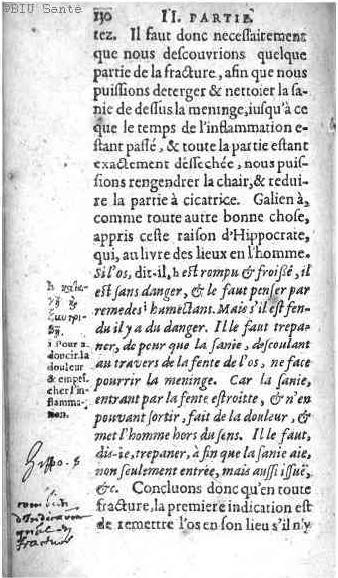 ©BIU Santé
130 II. PARTIE
tez. Il faut donc necessairement
que nous descouvrions quelque
partie de la fracture, afin que nous
puissions deterger & nettoier la sa-
nie de dessus la meninge, iusqu'à ce
que le temps de l'inflammation e-
stant passé, & toute la partie estant
exactement dessechée, nous puis-
sions rengendrer la chair, & redui-
re la partie à cicatrice. Galien à,
comme toute autre bonne chose,
appris ceste raison d'Hippocrate,
qui, au livre des lieux en l'homme.
Si l'os, dit-il, h est rompu & froißé, il
est sans danger, & le faut penser par
remedes i humectant. Mais s'il est fen-
du il y a du danger. Il le faut trepa-
ner, de peur que la sanie, descoulant
au travers de la fente de l'os, ne face
pourrir la meninge. Car la sanie,
entrant par la fente estroitte, & n'en
pouvant sortir, fait de la douleur, &
met l'homme hors du sens. Il le faut,
dis-ie, trepaner, à fin que la sanie aie,
non seulement entrée, mais aussi issuë,
&c. Concluons donc qu'en toute
fracture, la premiere indication est
de remettre l'os en son lieu s'il n'y
i Pour a-
doucir la
douleur
& empes-
cher l'in-
flamma-
tion.